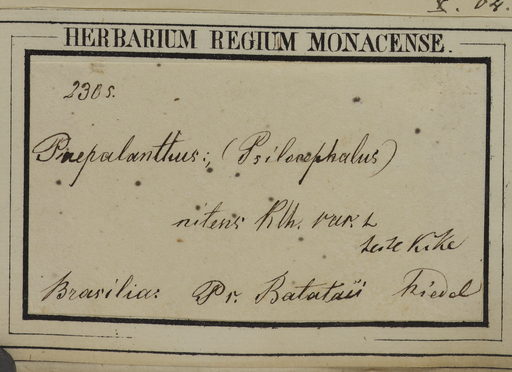 X. 02.
HERBARIUM REGIUM MONACENSE.
2305.
Paepalanthus: (Psilocephalus)
nitens Kth. var. L
teste Kcke
Brasilia: Pr. Batataïs Riedel